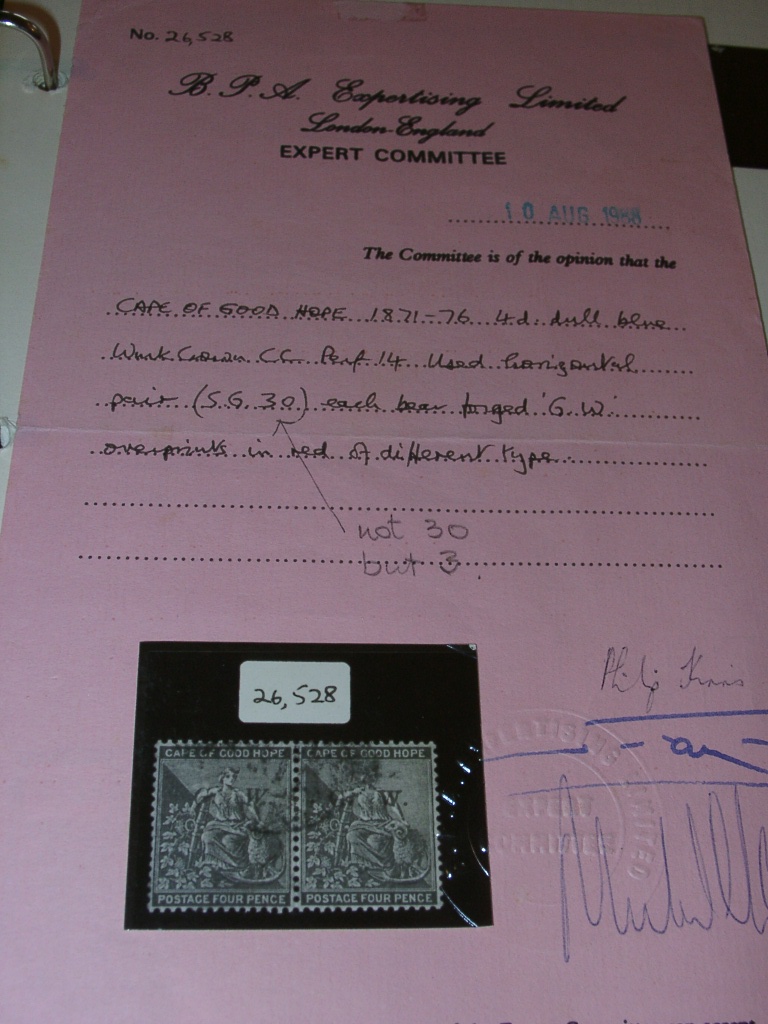 No. 26,528
B.P.A. Expertising Limited
London-England
EXPERT COMMITTEE
10 AUG 1988
The Committee is of the opinion that the
CAPE OF GOOD HOPE 1871-76 4d. dull blue
Wmk Crown CC Perf 14 Used horizontal
pair (S.G. 30) each bear forged 'G.W.'
overprints in red of different type.
not 30
but 3.
26,528
CAPE OF GOOD HOPE CAPE OF GOOD HOPE
W. W.
POSTAGE FOUR PENCE POSTAGE FOUR PENCE
Philip
EXPERTISING LIMITED
EXPERT
COMMITTEE